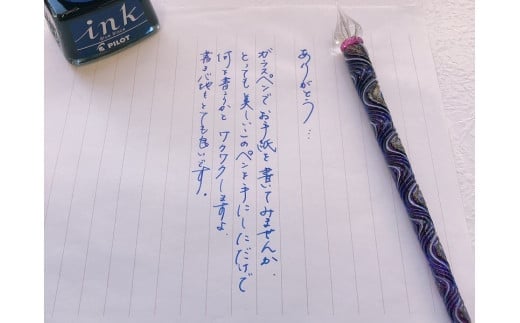 ink
PILOT
ありがとう…
ガラスペンでお手紙を書いてみませんか.
とっても美しいこのペンを手にしただけで
何を書こうかとワクワクしますよ.
書き心地もとても良いです。